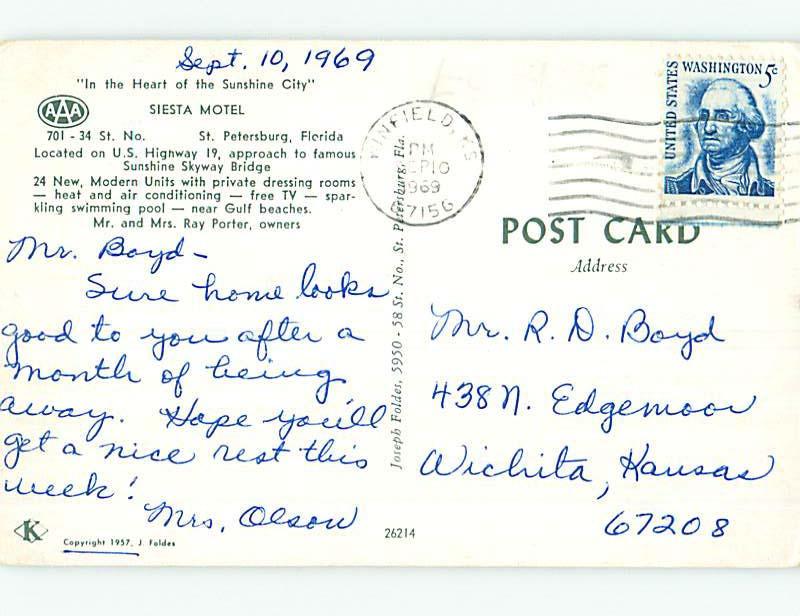 Sept. 10, 1969
"In the Heart of the Sunshine City"
AAA
SIESTA MOTEL
701 - 34 St. No. St. Petersburg, Florida
Located on U.S. Highway 19, approach to famous
Sunshine Skyway Bridge
24 New, Modern Units with private dressing rooms
— heat and air conditioning — free TV — spar-
kling swimming pool — near Gulf beaches.
Mr. and Mrs. Ray Porter, owners
Mr. Boyd -
Sure home looks
good to you after a
month of being
away. Hope you'll
get a nice rest this
week!
Mrs. Olson
K
Copyright 1957, J. Foldes
26214
Joseph Foldes, 5950 - 58 St. No., St. Petersburg, Fla.
WINFIELD, KS
PM
SEP10
1969
67156
UNITED STATES
WASHINGTON 5c
POST CARD
Address
Mr. R. D. Boyd
438 N. Edgemoor
Wichita, Kansas
67208